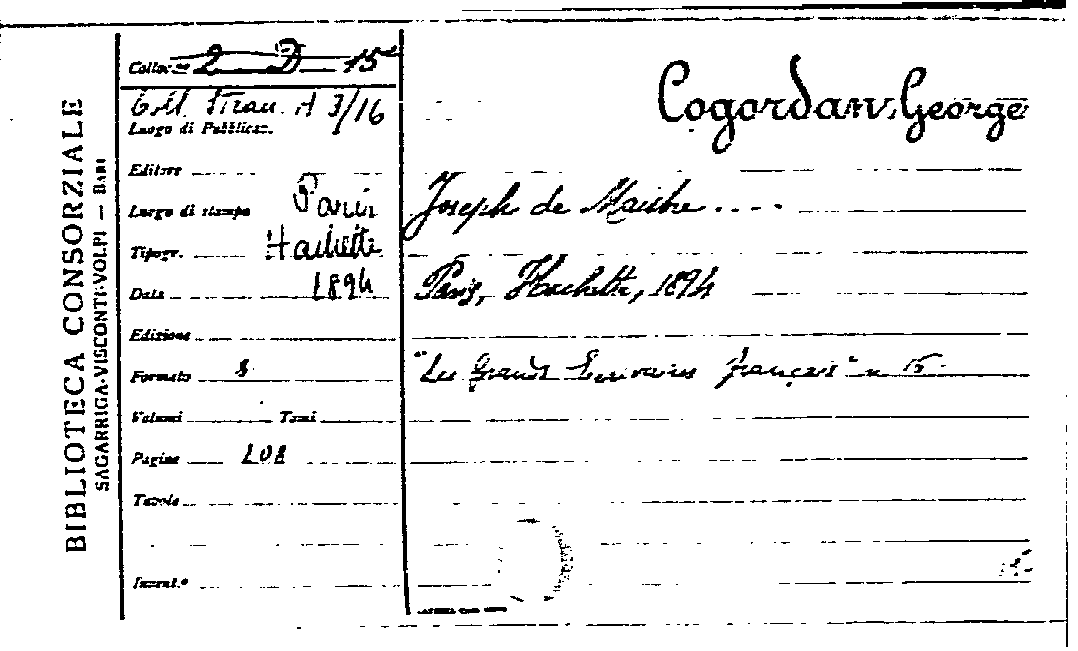 BIBLIOTECA CONSORZIALE
SAGARRIGA-VISCONTI-VOLPI — BARI
Colloc.ne 2 D 15
A 3/16
Luogo di Pubblicaz.
Editore
Luogo di stampa Paris
Tipogr. Hachette
Data 1894
Edizione
Formato 8
Volumi Tomi
Pagine 208
Tavole
Invent.º
Cogordan, George
Joseph de Maistre . . . .
Paris, Hachette, 1894
"Les Grands Ecrivains français" n 15